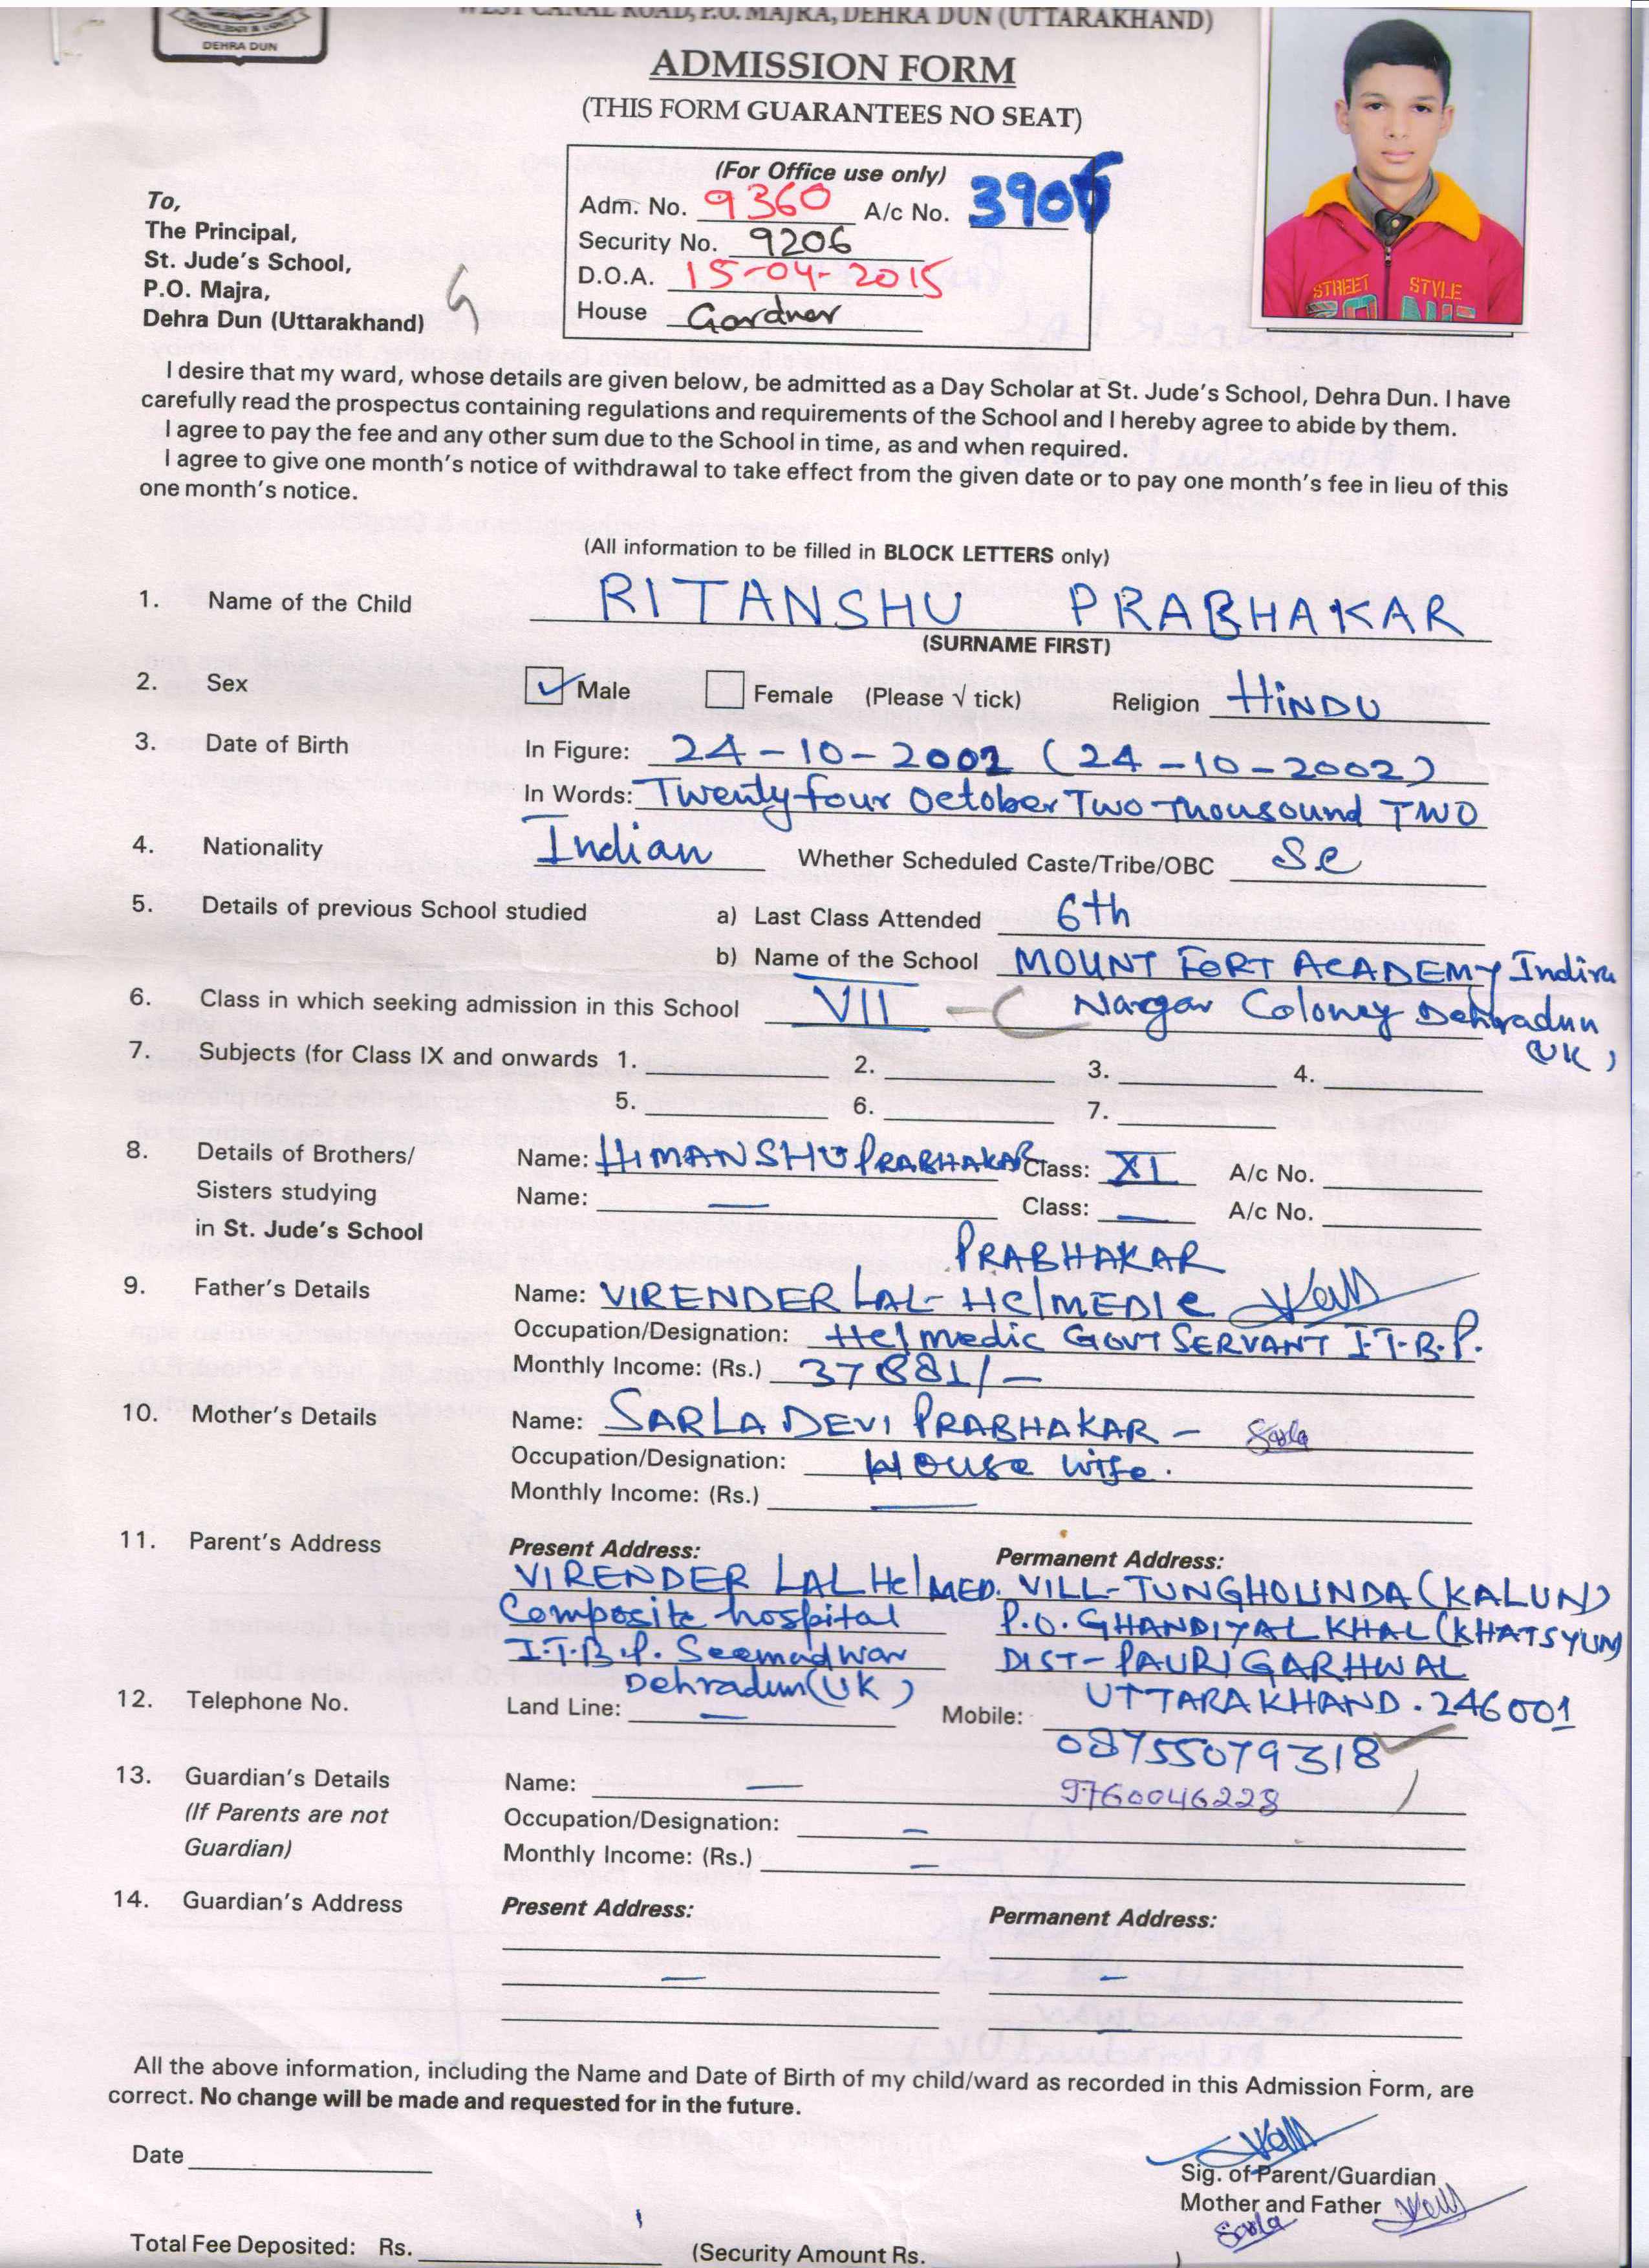 WEST CANAL ROAD, P.O. MAJRA, DEHRA DUN (UTTARAKHAND)
DEHRA DUN
ADMISSION FORM
(THIS FORM GUARANTEES NO SEAT)
(For Office use only)
Adm. No. 9360 A/c No. 3906
Security No. 9206
D.O.A. 15-04-2015
House Gardner
To,
The Principal,
St. Jude's School,
P.O. Majra,
Dehra Dun (Uttarakhand)
STREET STYLE
I desire that my ward, whose details are given below, be admitted as a Day Scholar at St. Jude's School, Dehra Dun. I have
carefully read the prospectus containing regulations and requirements of the School and I hereby agree to abide by them.
I agree to pay the fee and any other sum due to the School in time, as and when required.
I agree to give one month's notice of withdrawal to take effect from the given date or to pay one month's fee in lieu of this
one month's notice.
(All information to be filled in BLOCK LETTERS only)
1. Name of the Child RITANSHU PRABHAKAR
(SURNAME FIRST)
2. Sex Male Female (Please √ tick) Religion HiNDU
3. Date of Birth In Figure: 24-10-2002 (24-10-2002)
In Words: Twenty four October Two Thousound TWO
4. Nationality Indian Whether Scheduled Caste/Tribe/OBC Sc
5. Details of previous School studied a) Last Class Attended 6th
b) Name of the School MOUNT FORT ACADEMY Indira
6. Class in which seeking admission in this School VII - C Nargar Coloney Dehradun
(UK)
7. Subjects (for Class IX and onwards 1. 2. 3. 4.
5. 6. 7.
8. Details of Brothers/ Name: HIMANSHU PRABHAKAR Class: XI A/c No.
Sisters studying Name: — Class: — A/c No.
in St. Jude's School
PRABHAKAR
9. Father's Details Name: VIRENDER LAL - Hc/MEDIC
Occupation/Designation: Hc/medic GOVT SERVANT I.T.B.P.
Monthly Income: (Rs.) 37881/-
10. Mother's Details Name: SARLA DEVI PRABHAKAR - Sarla
Occupation/Designation: House wife.
Monthly Income: (Rs.) —
11. Parent's Address Present Address: Permanent Address:
VIRENDER LAL Hc/MED. VILL-TUNGHOLINDA (KALUN)
Composite hospital P.O. GHANDIYAL KHAL (KHATSYUN)
I.T.B.P. Seemadwar DIST-PAURI GARHWAL
Dehradun (UK) UTTARAKHAND. 246001
12. Telephone No. Land Line: — Mobile:
08755079318
13. Guardian's Details Name: — 9760046228
(If Parents are not Occupation/Designation: —
Guardian) Monthly Income: (Rs.) —
14. Guardian's Address Present Address: Permanent Address:
— —
All the above information, including the Name and Date of Birth of my child/ward as recorded in this Admission Form, are
correct. No change will be made and requested for in the future.
Date
Sig. of Parent/Guardian
Mother and Father
Sarla
Total Fee Deposited: Rs. (Security Amount Rs. )